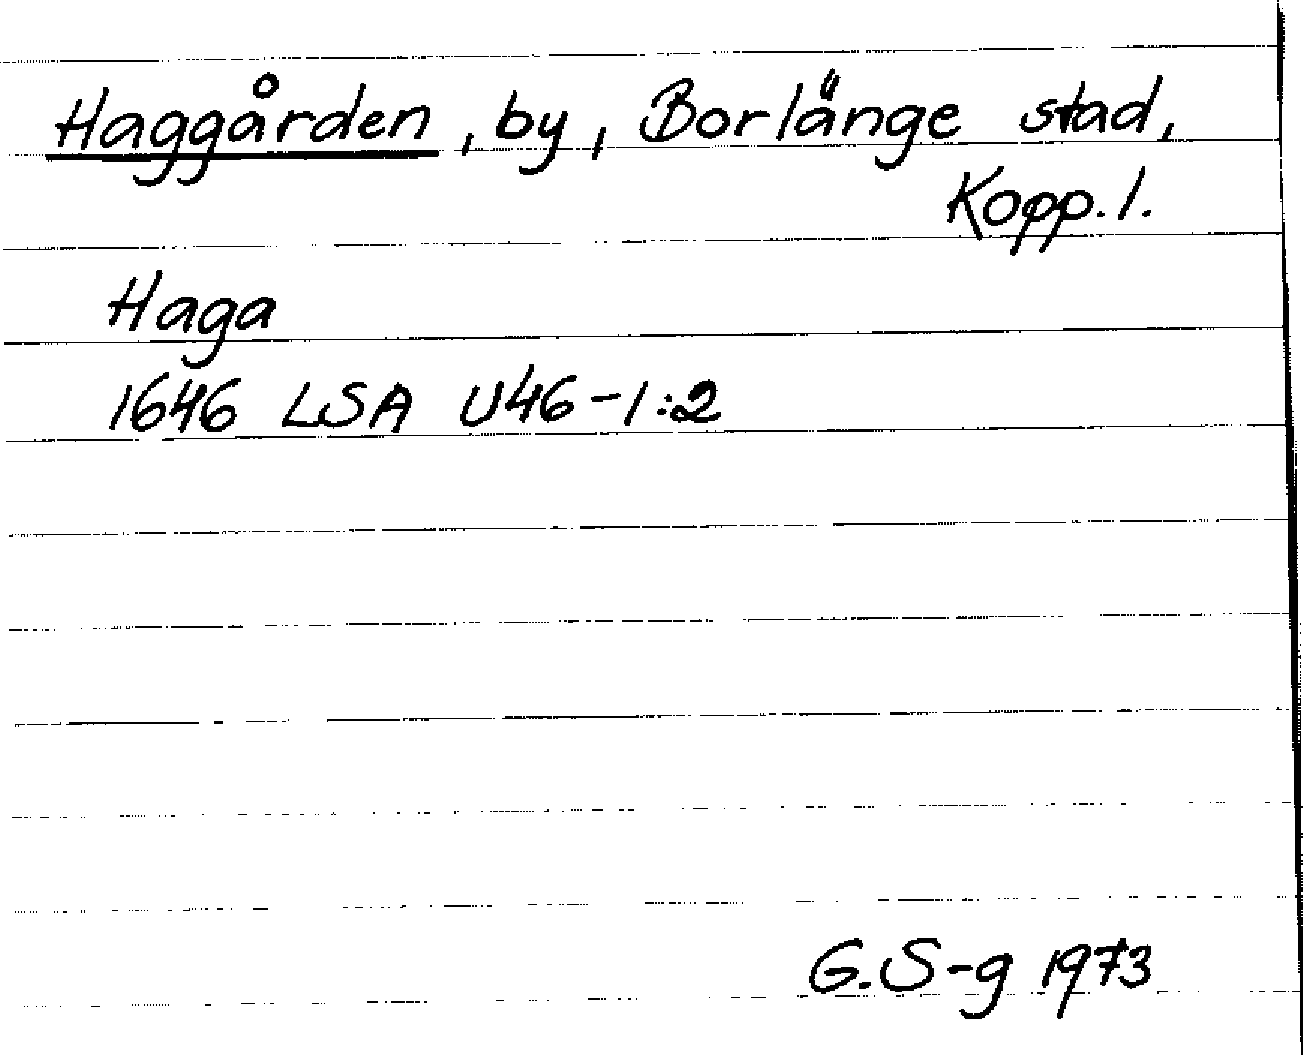 Haggården, by, Borlänge stad,
Kopp. l.
Haga
1646 LSA U46-1:2
G.S-g 1973